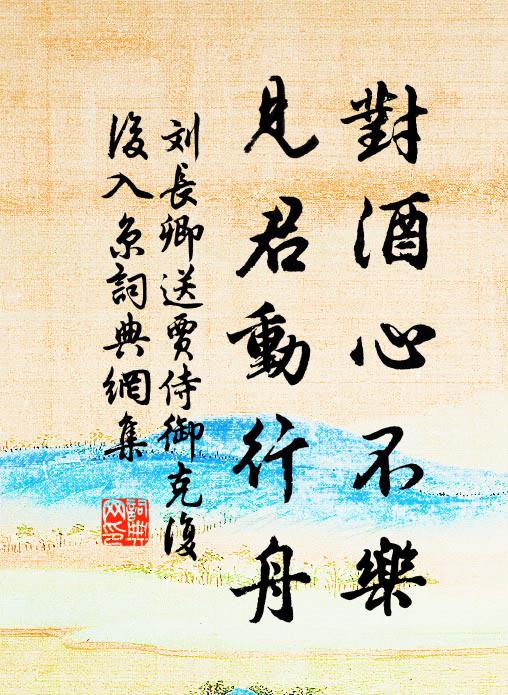 對酒心不樂
見君動行舟
刘長卿送贾侍御克復
後入京詞典網集
詞典
网印